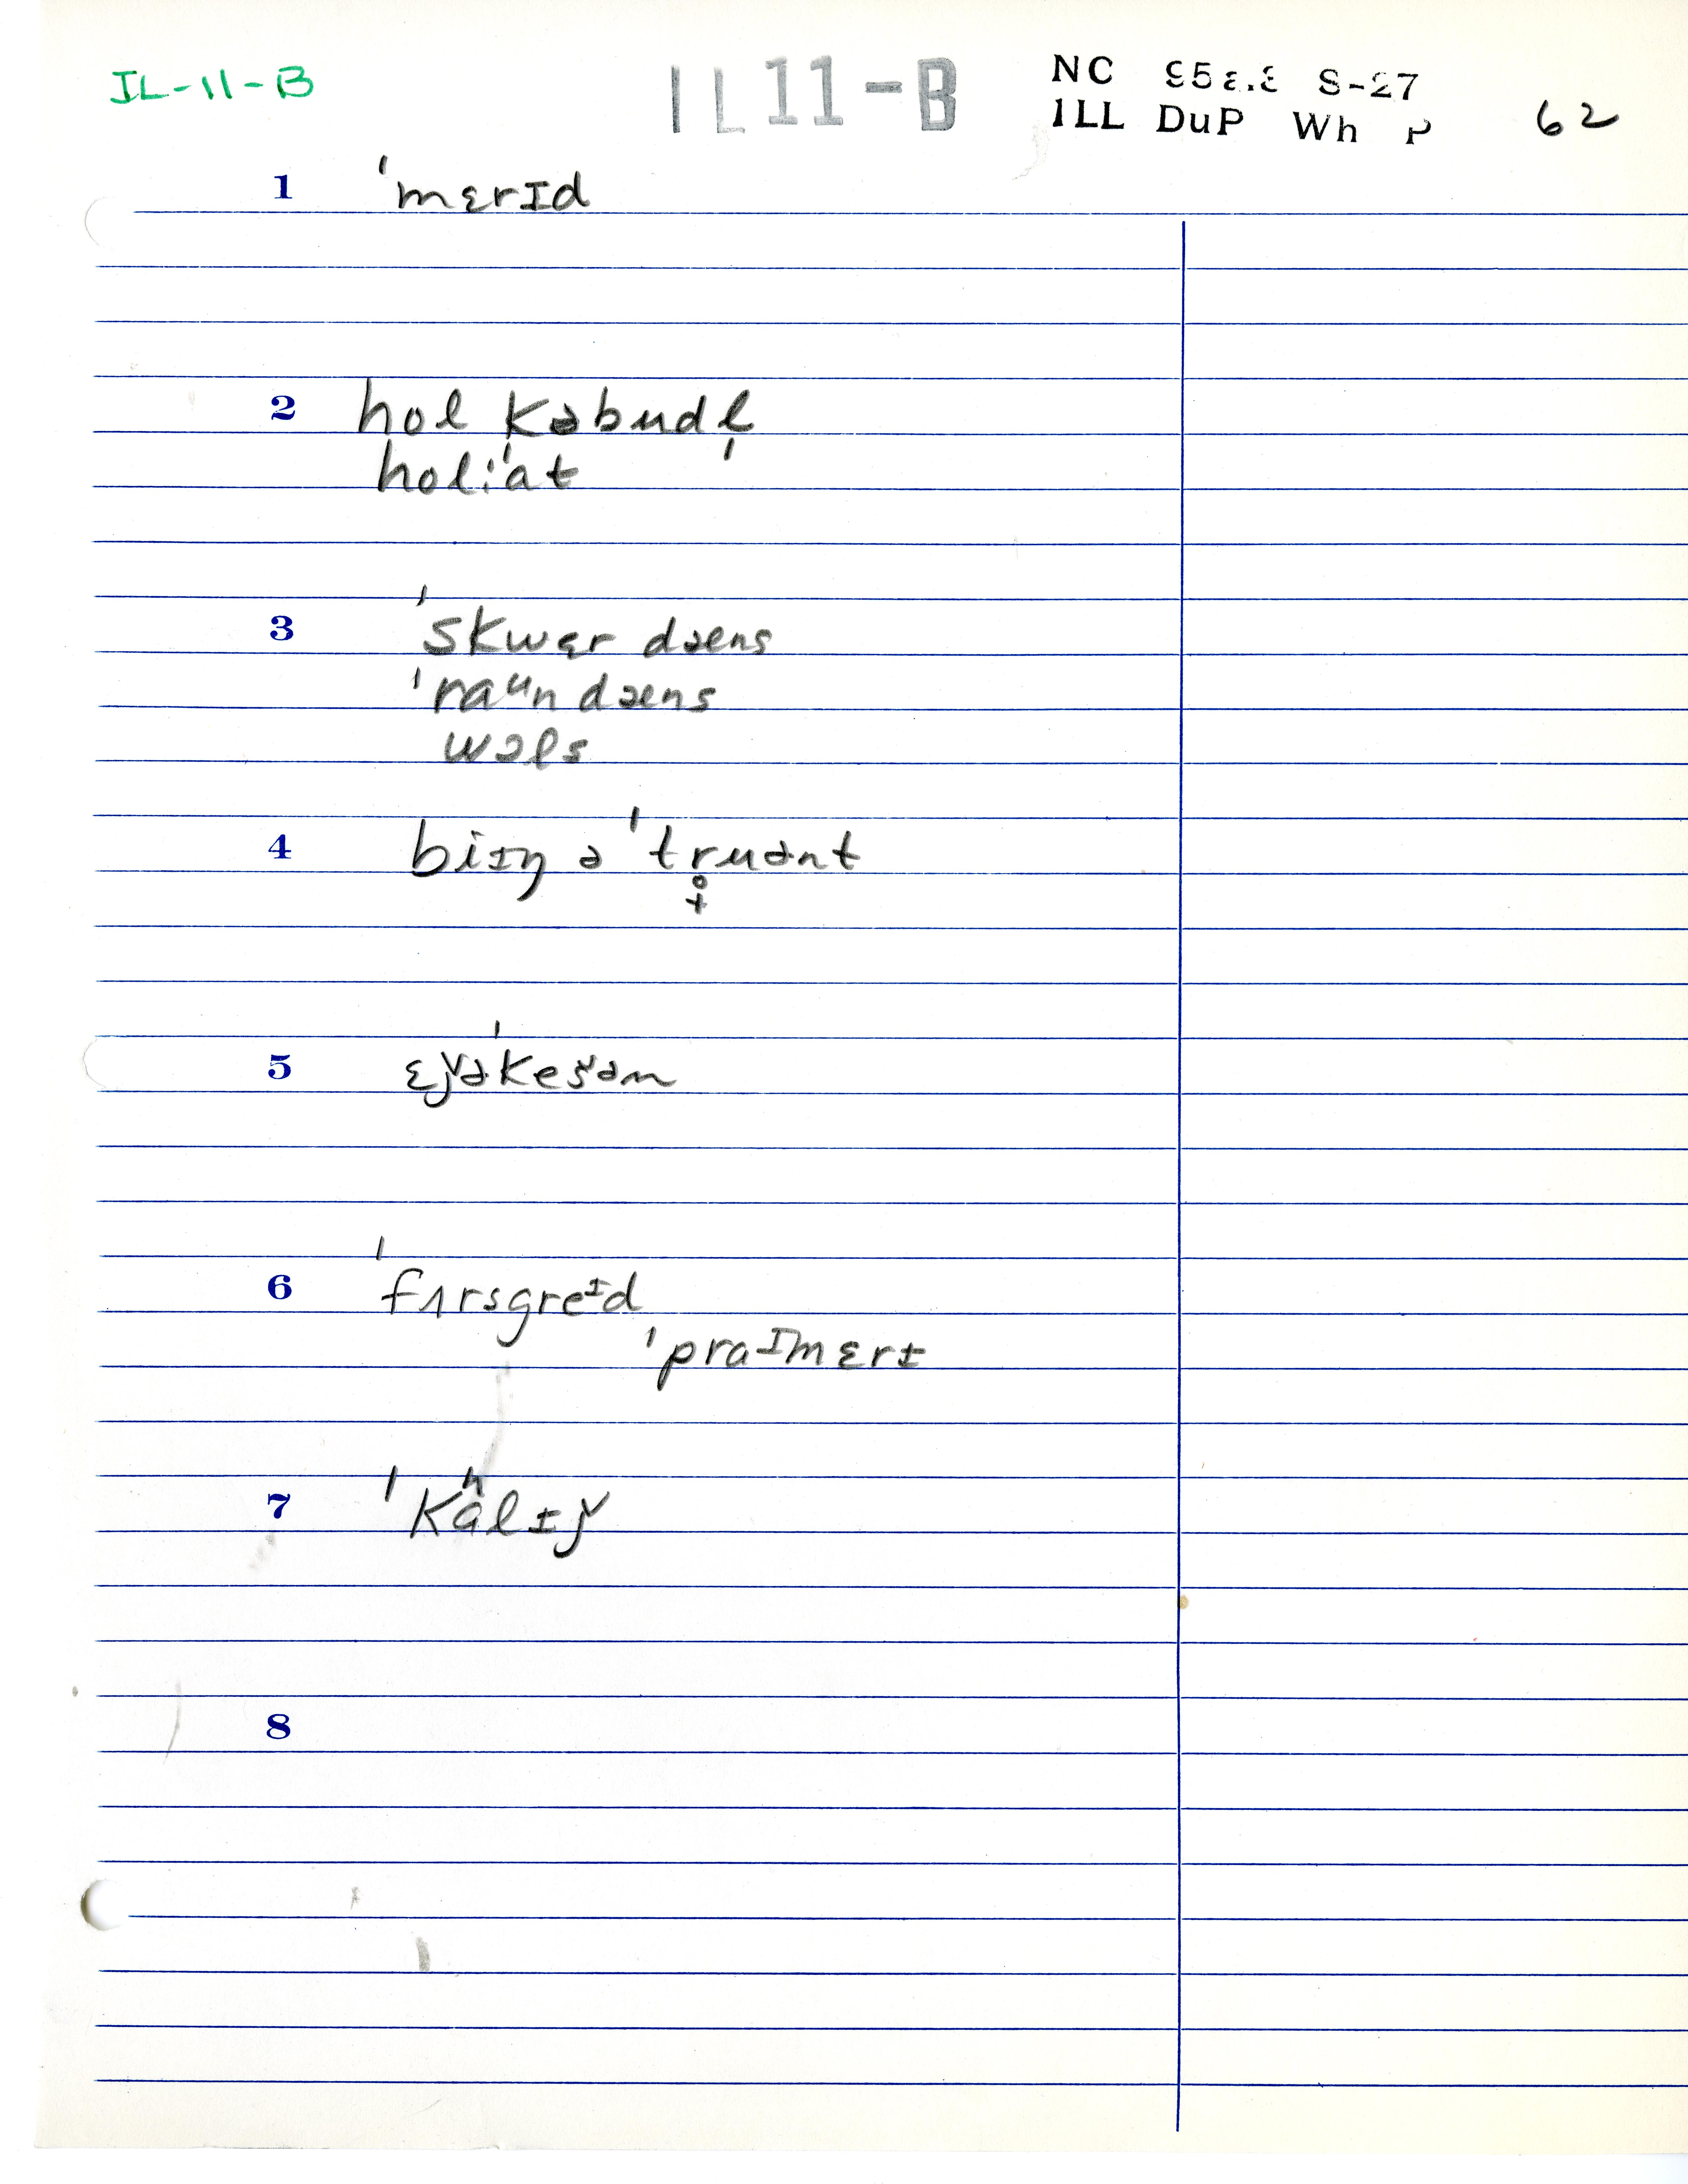 IL-11-B
IL11-B
NC 958.8 S-27
ILL DuP Wh P
62
1 ˈmɛrɪd
2 hol kəbudl̩
holːˈat
3 ˈskwɛr dæns
ˈraᵘn dæns
wɔls
4 biɪŋ ə ˈtr̥uənt
5 ɛǰəˈkešən
6 ˈfʌrsgreᶦd
ˈpraᶦmɛrɪ
7 ˈkɑ̂lɪǰ
8